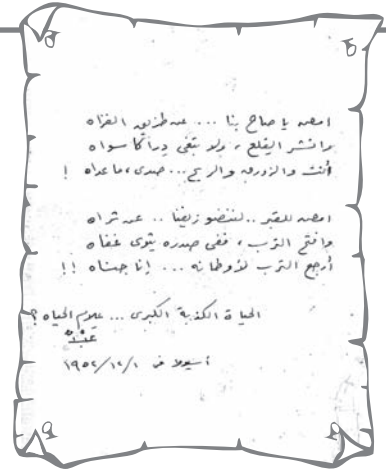 امض يا صاح بنا ... عن طريق الغزاه
وانشر القلع، ولا تبغى دراكا سواه
أنت والزورق والريح ... صدى، ماعداه !
امض للقبر .. لننضو زيفنا .. عن ثراه
وافتح الترب، ففى صدره يثوى عفاه
أرجع الترب لأوطانه ... إنا جناه !!
الحياة الكذبة الكبرى ... علام الحياه ؟
عبده
١٩٥٢/١٢/١